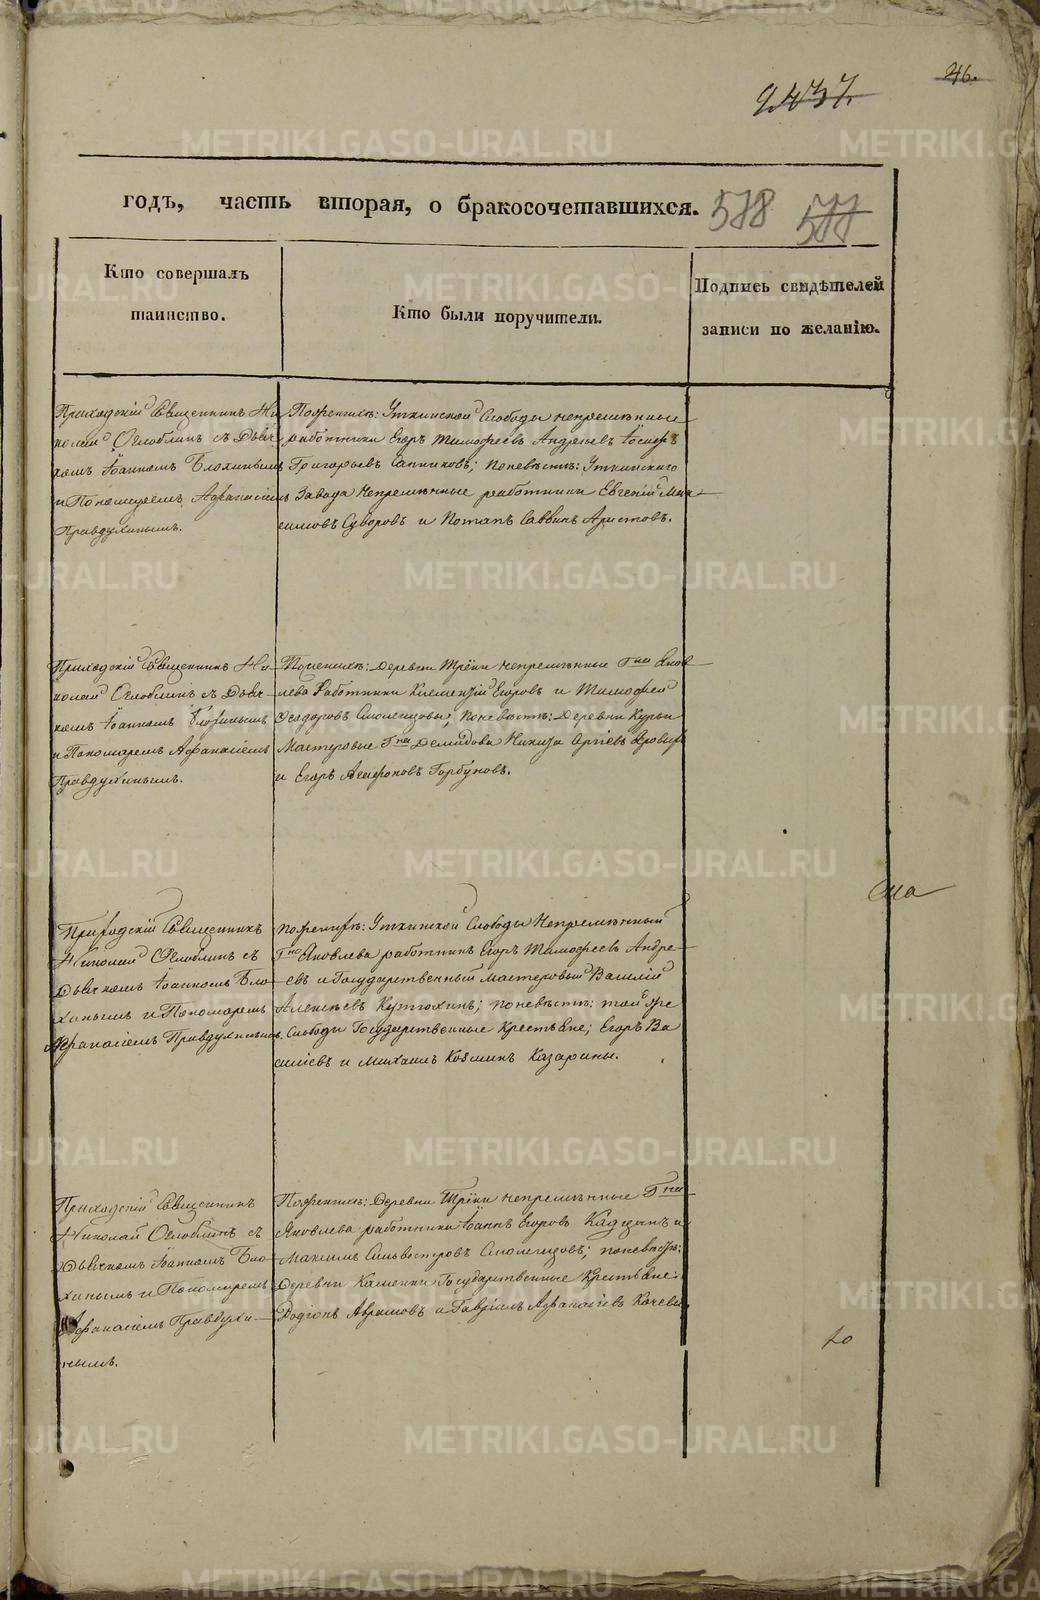 46.
2437.
годъ, часть вторая, о бракосочетавшихся. 578 577
Кто совершалъ
таинство.
Кто были поручители.
Подпись свидѣтелей
записи по желанію.
Приходскій Священникъ Ни-
колай Оглоблинъ съ Дьяч-
комъ Іоанномъ Блохинымъ
и Пономаремъ Аѳанасіемъ
Правдухинымъ.
Поженихѣ: Уткинской Слободы непремѣнные
работники Егоръ Тимофеевъ Андреевъ Іосифъ
Григорьевъ Сапниковъ; поневѣстѣ: Уткинскаго
Завода непремѣнные работники Евгеній Мак-
симовъ Суворовъ и Потапъ Саввинъ Аристовъ.
Приходскій Священникъ Ни-
колай Оглоблинъ съ Дьяч-
комъ Іоанномъ Блохинымъ
и Пономаремъ Аѳанасіемъ
Правдухинымъ.
Поженихѣ: Деревни Трёки непремѣнные Гна Яков-
лева Работники Климентій Егоровъ и Тимофей
Ѳеодоровъ Смоленцовы; поневѣстѣ: Деревни Курьи
Мастеровые Гна Демидова Никита
и Егоръ Агафоновъ Горбуновъ.
Приходскій Священникъ
Николай Оглоблинъ съ
Дьячкомъ Іоанномъ Бло-
хинымъ и Пономаремъ
Аѳанасіемъ Правдухинымъ.
Поженихѣ: Уткинской Слободы Непремѣнный
Гна Яковлева работникъ Егоръ Тимофеевъ Андре-
евъ и Государственный Мастеровый Василій
Алексѣевъ Кутюхинъ; поневѣстѣ: той же
Слободы Государственные Крестьяне; Егоръ Ва
силіевъ и Михаилъ Козминъ Казарины.
Приходскій Священникъ
Николай Оглоблинъ съ
Дьячкомъ Іоанномъ Бло-
хинымъ и Пономаремъ
Аѳанасіемъ Правдухи-
нымъ.
Поженихѣ: Деревни Трёки непремѣнные Гна
Яковлева работники Іоаннъ Егоровъ и
Максимъ Сильвестровъ Смоленцовъ; поневѣстѣ:
Деревни Каменки Государственные Крестьяне:
Родіонъ Аврамовъ и Гавріилъ Аѳанасіевъ
METRIKI.GASO-URAL.RU